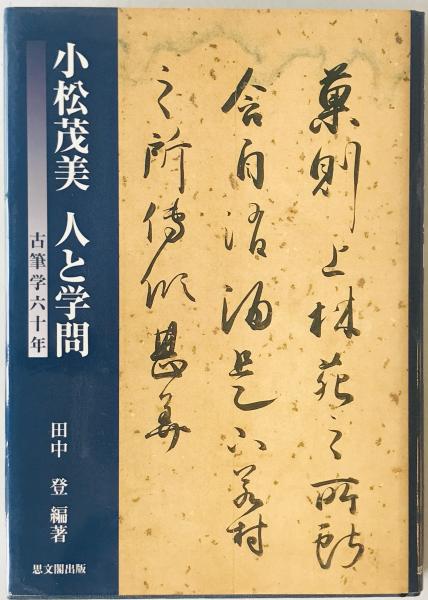 小松茂美 人と学問
古筆学六十年
田中 登 編著
思文閣出版
菓則上林苑之所献
含自消酒是下若村
之所傳傾甚美